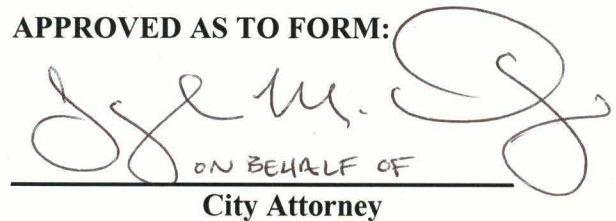 APPROVED AS TO FORM:
ON BEHALF OF
City Attorney